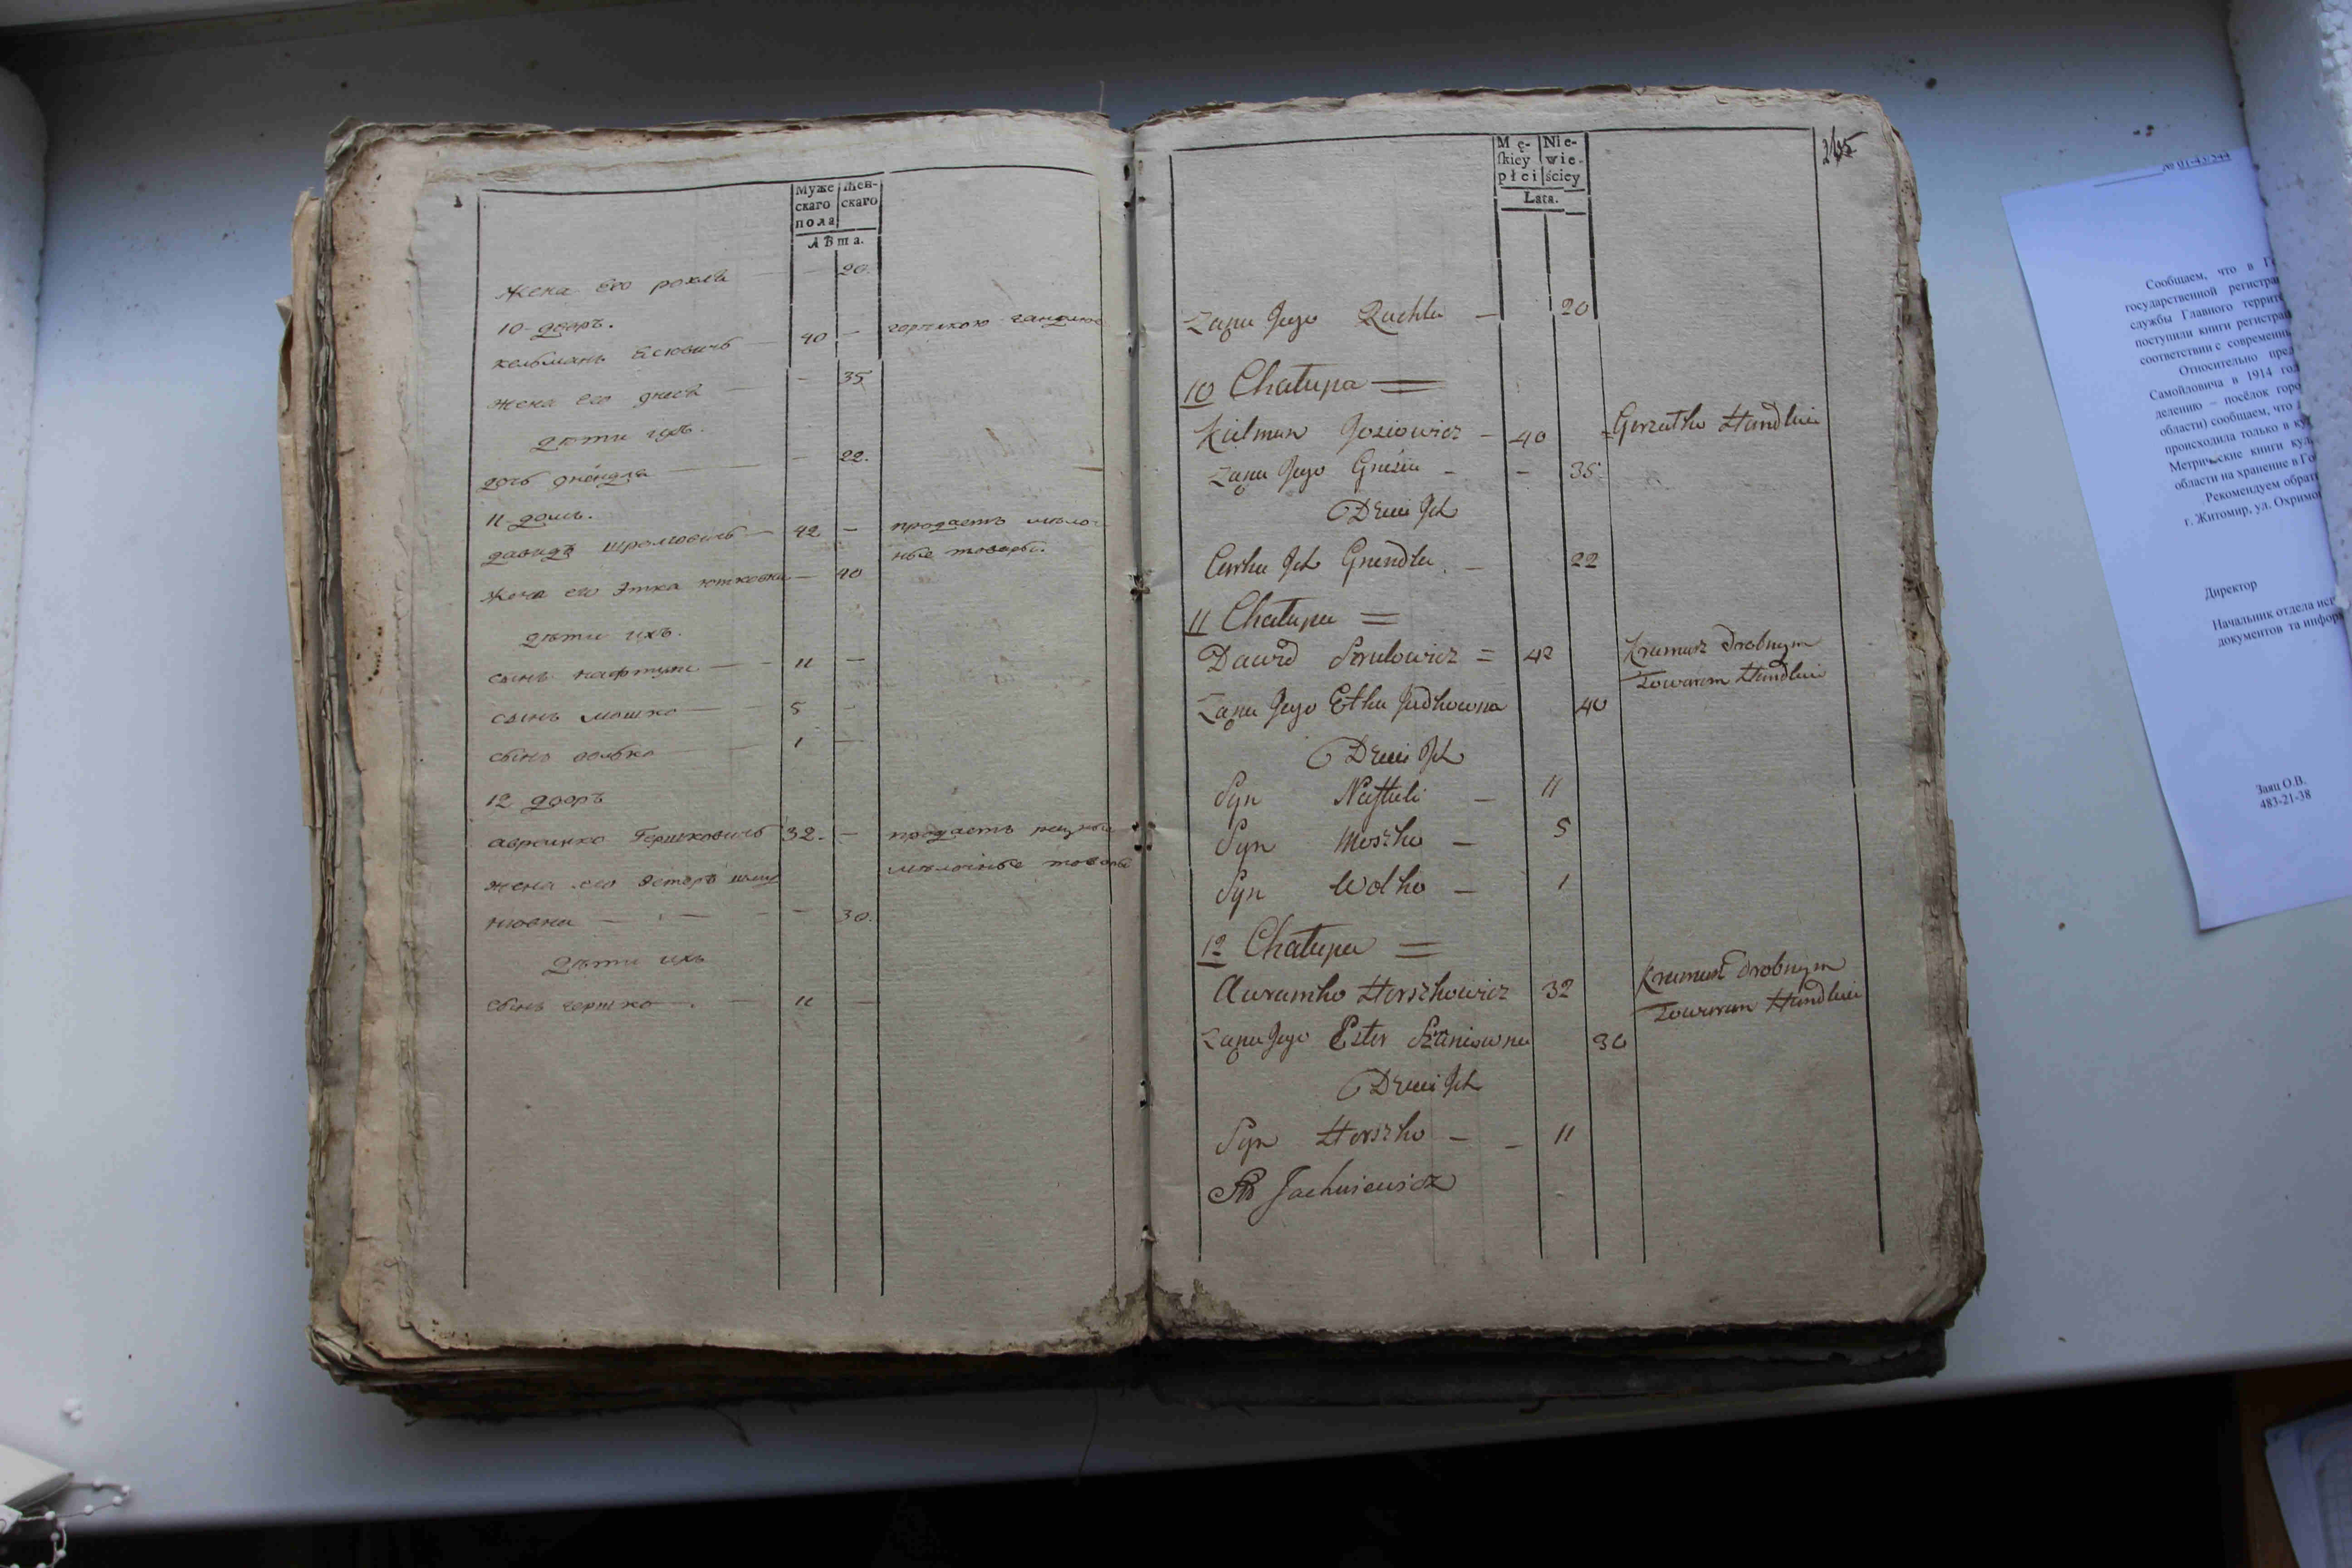 Муже
скаго
пола
Жен-
скаго
ЛѢта.
жена его рохля — — 20.
10 дворъ.
кельманъ Есковичъ — 40 — горилкою
жена его гнеся — — 35
дѣти ихъ.
дочь гнендля — — 22.
11 домъ.
давидъ — 42 — продаетъ мелоч
ные товары.
жена его Этка ютковна — 40
дѣти ихъ.
сынъ нафтули — 11 —
сынъ мошко — 5 —
сынъ волько — 1 —
12 дворъ
авраимко Гершковичъ 32. — продаетъ
мелочные товары
жена его Эстеръ
новна — — 30.
дѣти ихъ
сынъ гершко — 11 —
Mę-
skiey
płci
Nie-
wie-
ściey
Lata.
265
Żąna Jego Ruchla — 20
10 Chałupa =
Kielman Josiowicz — 40 = Gorzałką Handluie
Żąna Jego Gniesia — — 35
Dzieci Ich
Curka Ich Gnendla — 22
11 Chałupa =
Dawid Srulowicz = 42 Kramarz drobnym
Towarem Handluie
Żąna Jego Etka Judkowna 40
Dzieci Ich
Syn Naftuli — 11
Syn Moszko — 5
Syn Wolko — 1
12 Chałupa =
Auramko Herszkowicz 32 Kramarz drobnym
Towarem Handluie
Żąna Jego Ester Szaniowna 30
Dzieci Ich
Syn Herszko — — 11
Jachniewicz
№ 01-43/544
Сообщаем, что в
государственной регистра
службы Главного террит
поступили книги регистра
соответствии с современн
Относительно пред
Самойловича в 1914 го
делению – посёлок горо
области) сообщаем, что
происходила только в
Метрические книги
области на хранение в Го
Рекомендуем обрат
г. Житомир, ул. Охримо
Директор
Начальник отдела
документов та инфор
Заяц О.В.
483-21-38